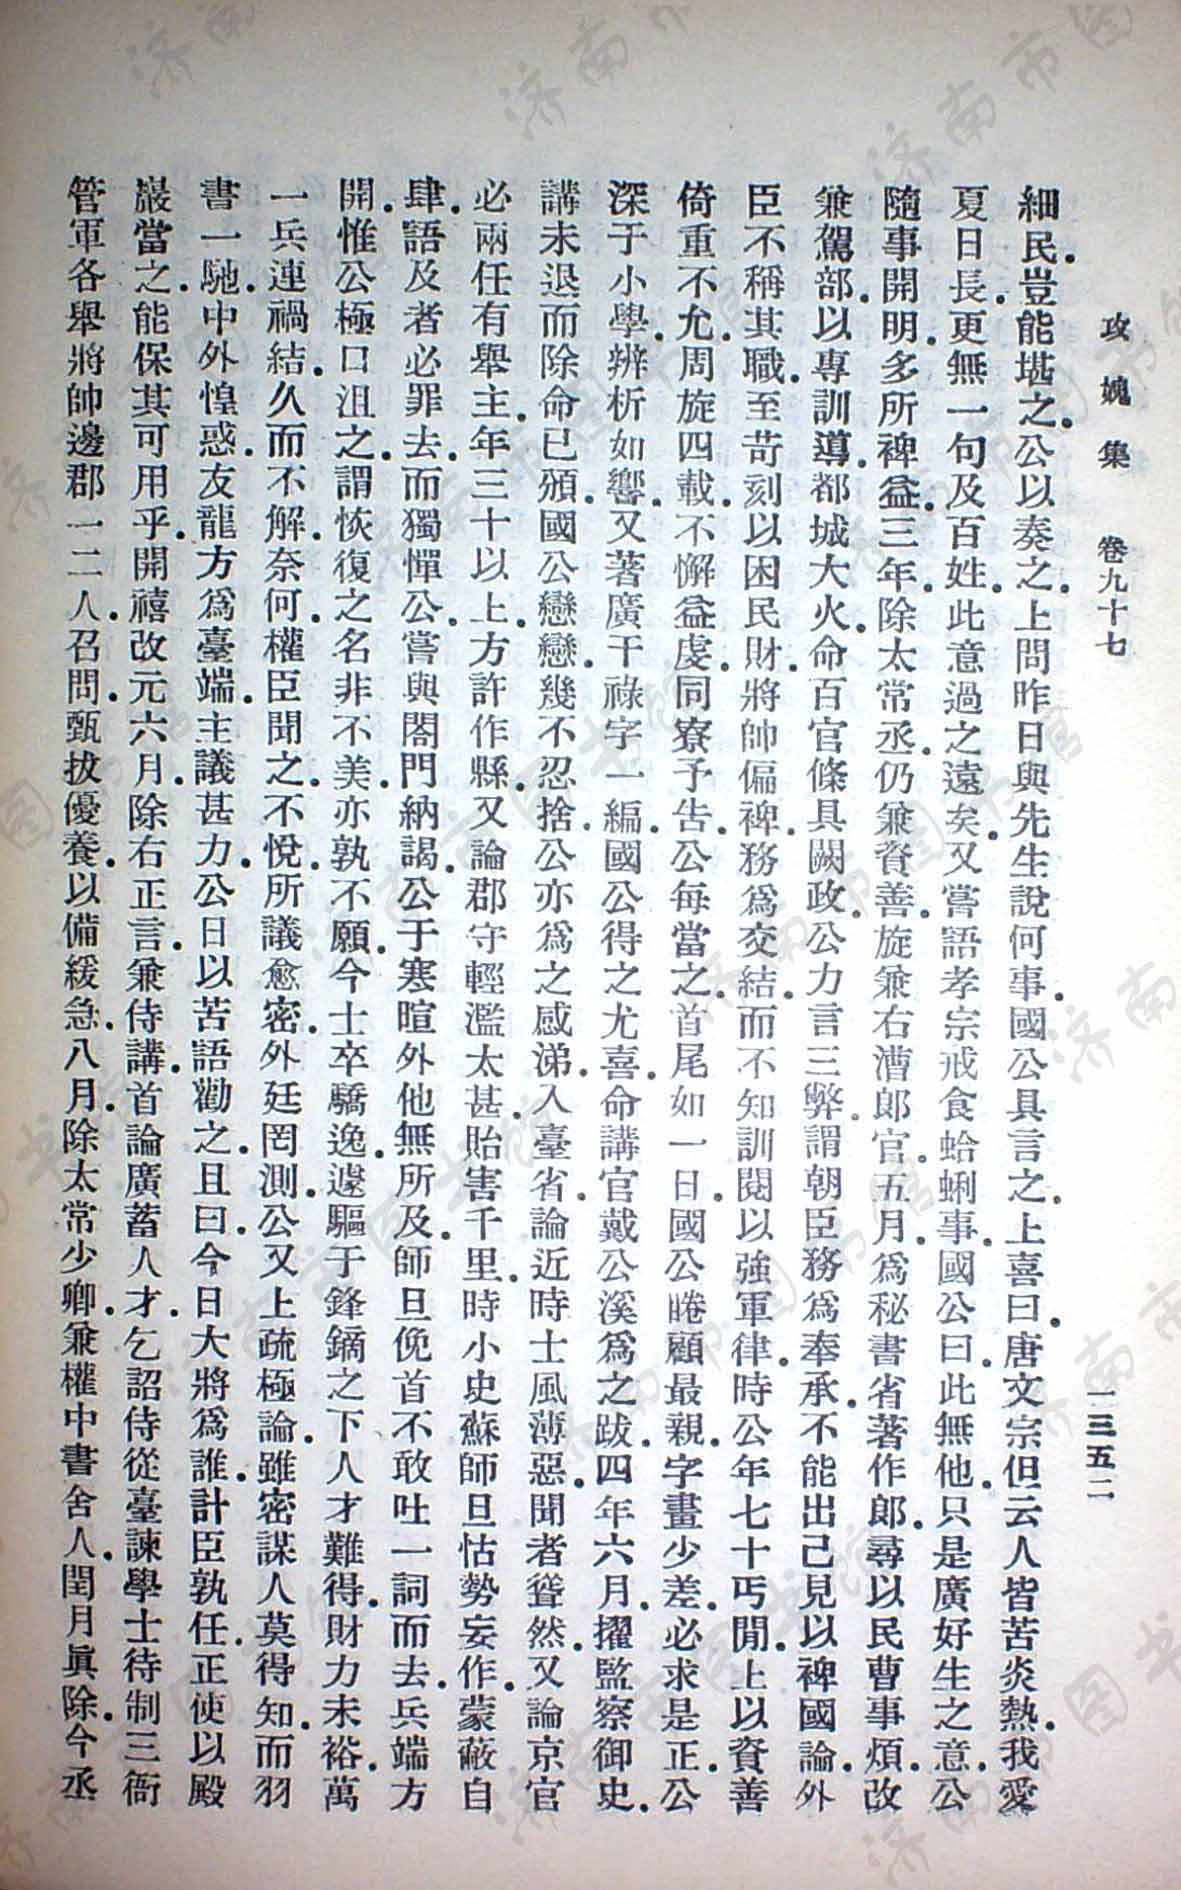 攻媿集 卷九十七 一三五二
細民.豈能堪之.公以奏之.上問昨日與先生說何事.國公具言之.上喜曰.唐文宗但云人皆苦炎熱.我愛
夏日長.更無一句及百姓.此意過之遠矣.又嘗語孝宗戒食蛤蜊事.國公曰.此無他.只是廣好生之意.公
隨事開明.多所裨益.三年.除太常丞.仍兼資善.旋兼右漕郎官.五月.爲秘書省著作郎.尋以民曹事煩.改
兼駕部.以專訓導.都城大火.命百官條具闕政.公力言三弊.謂朝臣務爲奉承.不能出己見以裨國論.外
臣不稱其職.至苛刻以困民財.將帥偏裨.務爲交結.而不知訓閱以強軍律.時公年七十丐閒.上以資善
倚重不允.周旋四載.不懈益虔.同寮予告.公每當之.首尾如一日.國公睠顧最親.字畫少差.必求是正.公
深于小學.辨析如響.又著廣干祿字一編.國公得之尤喜.命講官戴公溪爲之跋.四年六月.擢監察御史.
講未退而除命已頒.國公戀戀.幾不忍捨.公亦爲之感涕.入臺省.論近時士風薄惡.聞者聳然.又論京官
必兩任有舉主.年三十以上.方許作縣.又論郡守輕濫太甚.貽害千里.時小史蘇師旦怙勢妄作.蒙蔽自
肆.語及者必罪去.而獨憚公.嘗與閤門納謁.公于寒暄外他無所及.師旦俛首不敢吐一詞而去.兵端方
開.惟公極口沮之.謂恢復之名非不美.亦孰不願.今士卒驕逸.遽驅于鋒鏑之下.人才難得.財力未裕.萬
一兵連禍結.久而不解.奈何.權臣聞之.不悅.所議愈密.外廷罔測.公又上疏極論.雖密謀人莫得知.而羽
書一馳.中外惶惑.友龍方爲臺端.主議甚力.公日以苦語勸之.且曰.今日大將爲誰.計臣孰任.正使以殿
巖當之.能保其可用乎.開禧改元六月.除右正言.兼侍講.首論廣蓄人才.乞詔侍從臺諫學士待制三衙
管軍各舉將帥邊郡一二人.召問.甄拔優養.以備緩急.八月.除太常少卿.兼權中書舍人.閏月眞除.今丞